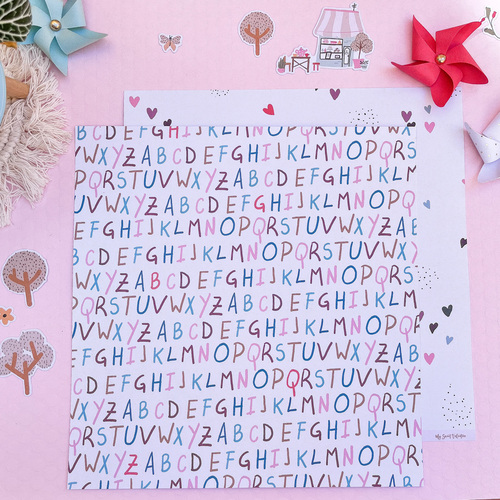 ABCDEFGHIJKLMNOPQRS
VWXYZABCDEFGHIJKLMNOPQRS
PQRSTUVWXYZABCDEFGHIJKLM
WXYZABCDEFGHIJKLMNOPQRS
EFGHIJKLMNOPQRSTUVWXYZAB
CDEFGHIJKLMNOPQRSTUVWXY
WXYZABCDEFGHIJKLMNOPQRS
PQRSTUVWXYZABCDEFGHIJKLM
VWXYZABCDEFGHIJKLMNOPQRS
EFGHIJKLMNOPQRSTUVWXYZAB
CDEFGHIJKLMNOPQRSTUVWXYZ
WXYZABCDEFGHIJKLMNOPQRS
QRSTUVWXYZABCDEFGHIJKLM
WXYZABCDEFGHIJKLMNOPQRS